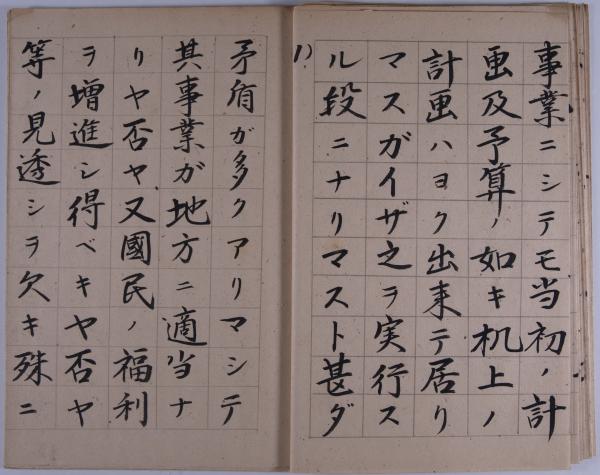 事業ニシテモ当初ノ計
画及予算ノ如キ机上ノ
計画ハヨク出来テ居リ
マスガイザ之ヲ実行ス
ル段ニナリマスト甚ダ
矛盾ガ多クアリマシテ
其事業ガ地方ニ適当ナ
リヤ否ヤ又國民ノ福利
ヲ増進シ得ベキヤ否ヤ
等ノ見透シヲ欠キ殊ニ